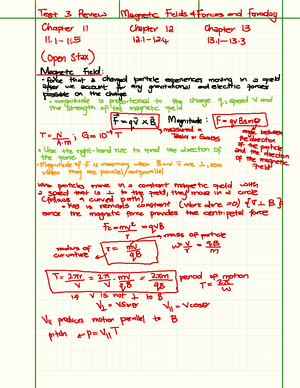 Test 3 Review Magnetic Fields & Forces and Faraday
Chapter 11 Chapter 12 Chapter 13
11.1 - 11.5 12.1 - 12.4 13.1 - 13.3
(Open Stax)
Magnetic Field:
• Force that a charged particle experiences moving in a field
after we account for any gravitational and electric forces
possible on the charge
• magnitude is proportional to the charge q, speed v and
the strength of the magnetic field
F = qv × B Magnitude: F = qvBsinθ
measured in
Tesla or Gauss
T = N/A·m ; G = 10⁻⁴ T
angle between
the direction
of the particle
and the direction
of the magnetic
field
• Use the right-hand rule to find the direction of
the force
• Magnitude of F is maximum when B and v are ⊥, zero
when they are parallel/antiparallel
When particles move in a constant magnetic field with
a speed that is ⊥ to the field, they move in a circle
(follows a curved path)
• KE is remains constant (work done = 0) {F ⊥ B}
since the magnetic force provides the centripetal force
Fc = mv²/r = qvB
mass of particle
radius of
curvature
r = mv/qB
ω = v/r = qB/m
T = 2πr/v = 2π/v · mv/qB = 2πm/qB period of motion
T = 2π/ω
if v is not ⊥ to B
V⊥ = vsinθ V∥ = vcosθ
V∥ produces motion parallel to B
pitch p = V∥T